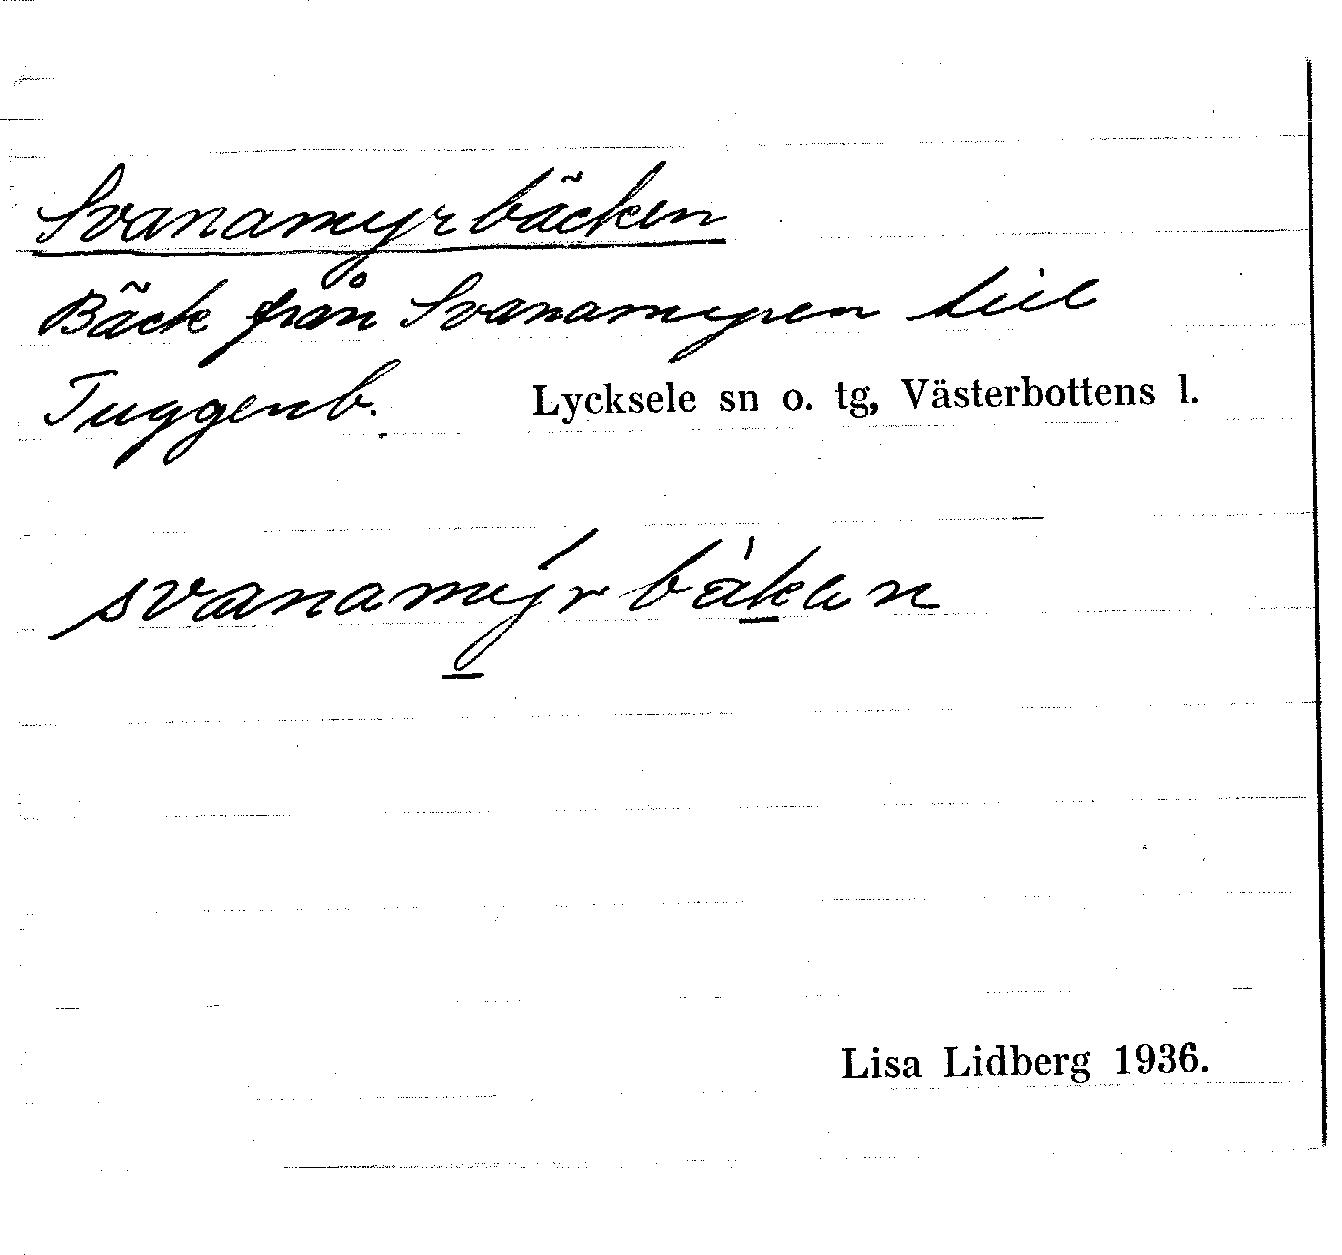 Svanamyrbäcken
Bäck från Svanamyren till
Tuggenb. Lycksele sn o. tg, Västerbottens l.
svanamýr bä̀kən
Lisa Lidberg 1936.